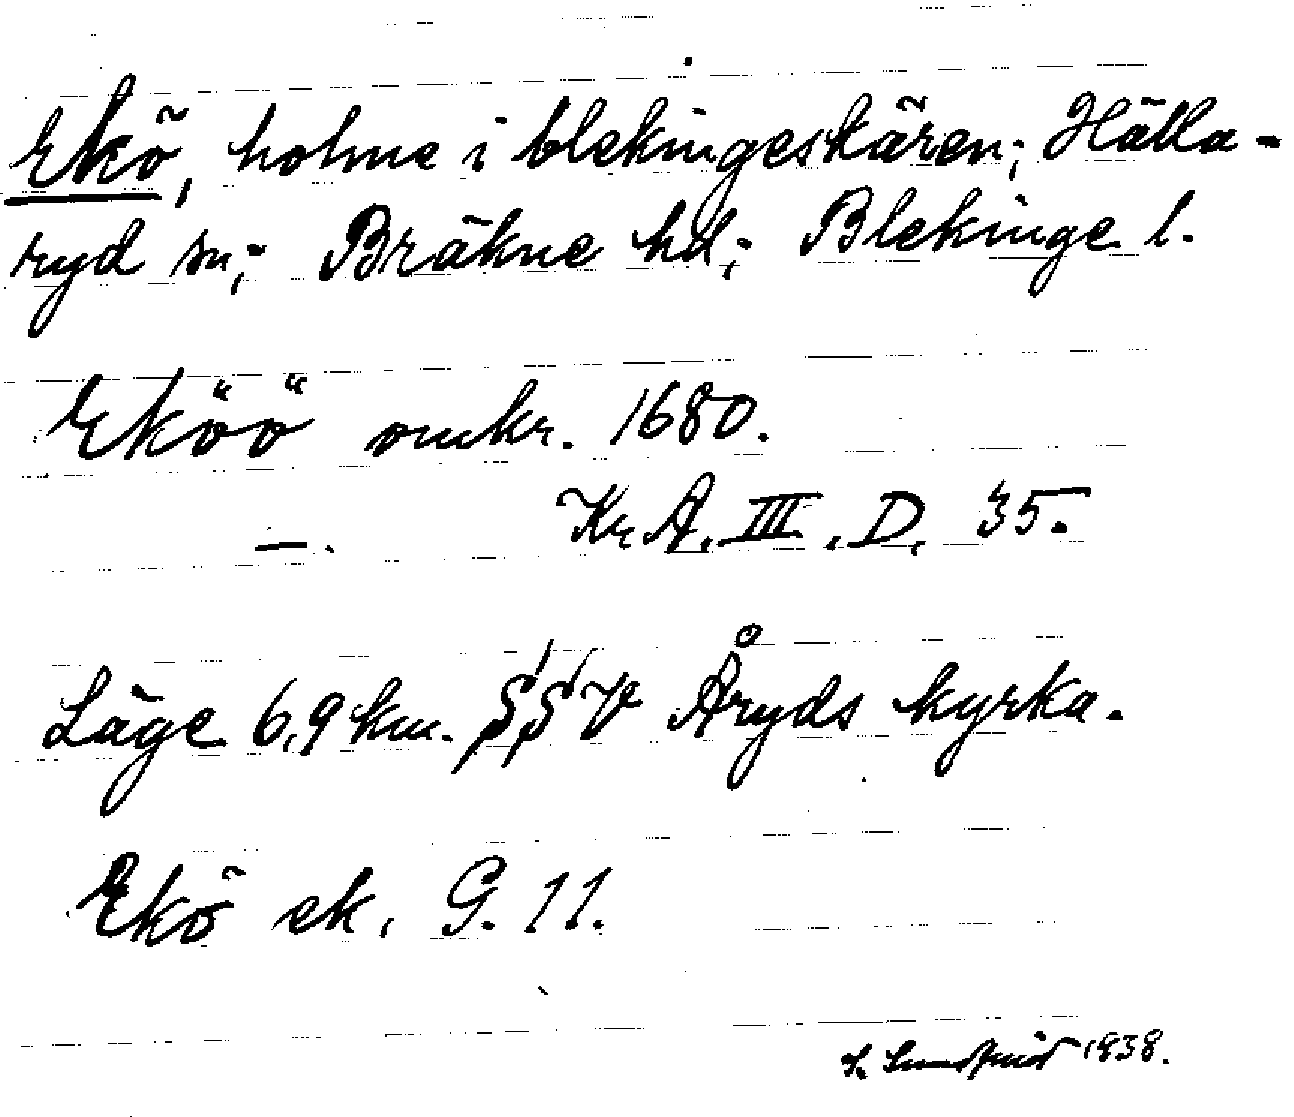 Ekö, holme i blekingeskären; Hälla-
ryd sn; Bräkne hd; Blekinge l.
Eköö omkr. 1680.
—. Kr. A. III. D. 35.
Läge 6,9 km. SSV Åryds kyrka.
Ekö ek. G. 11.
1938.